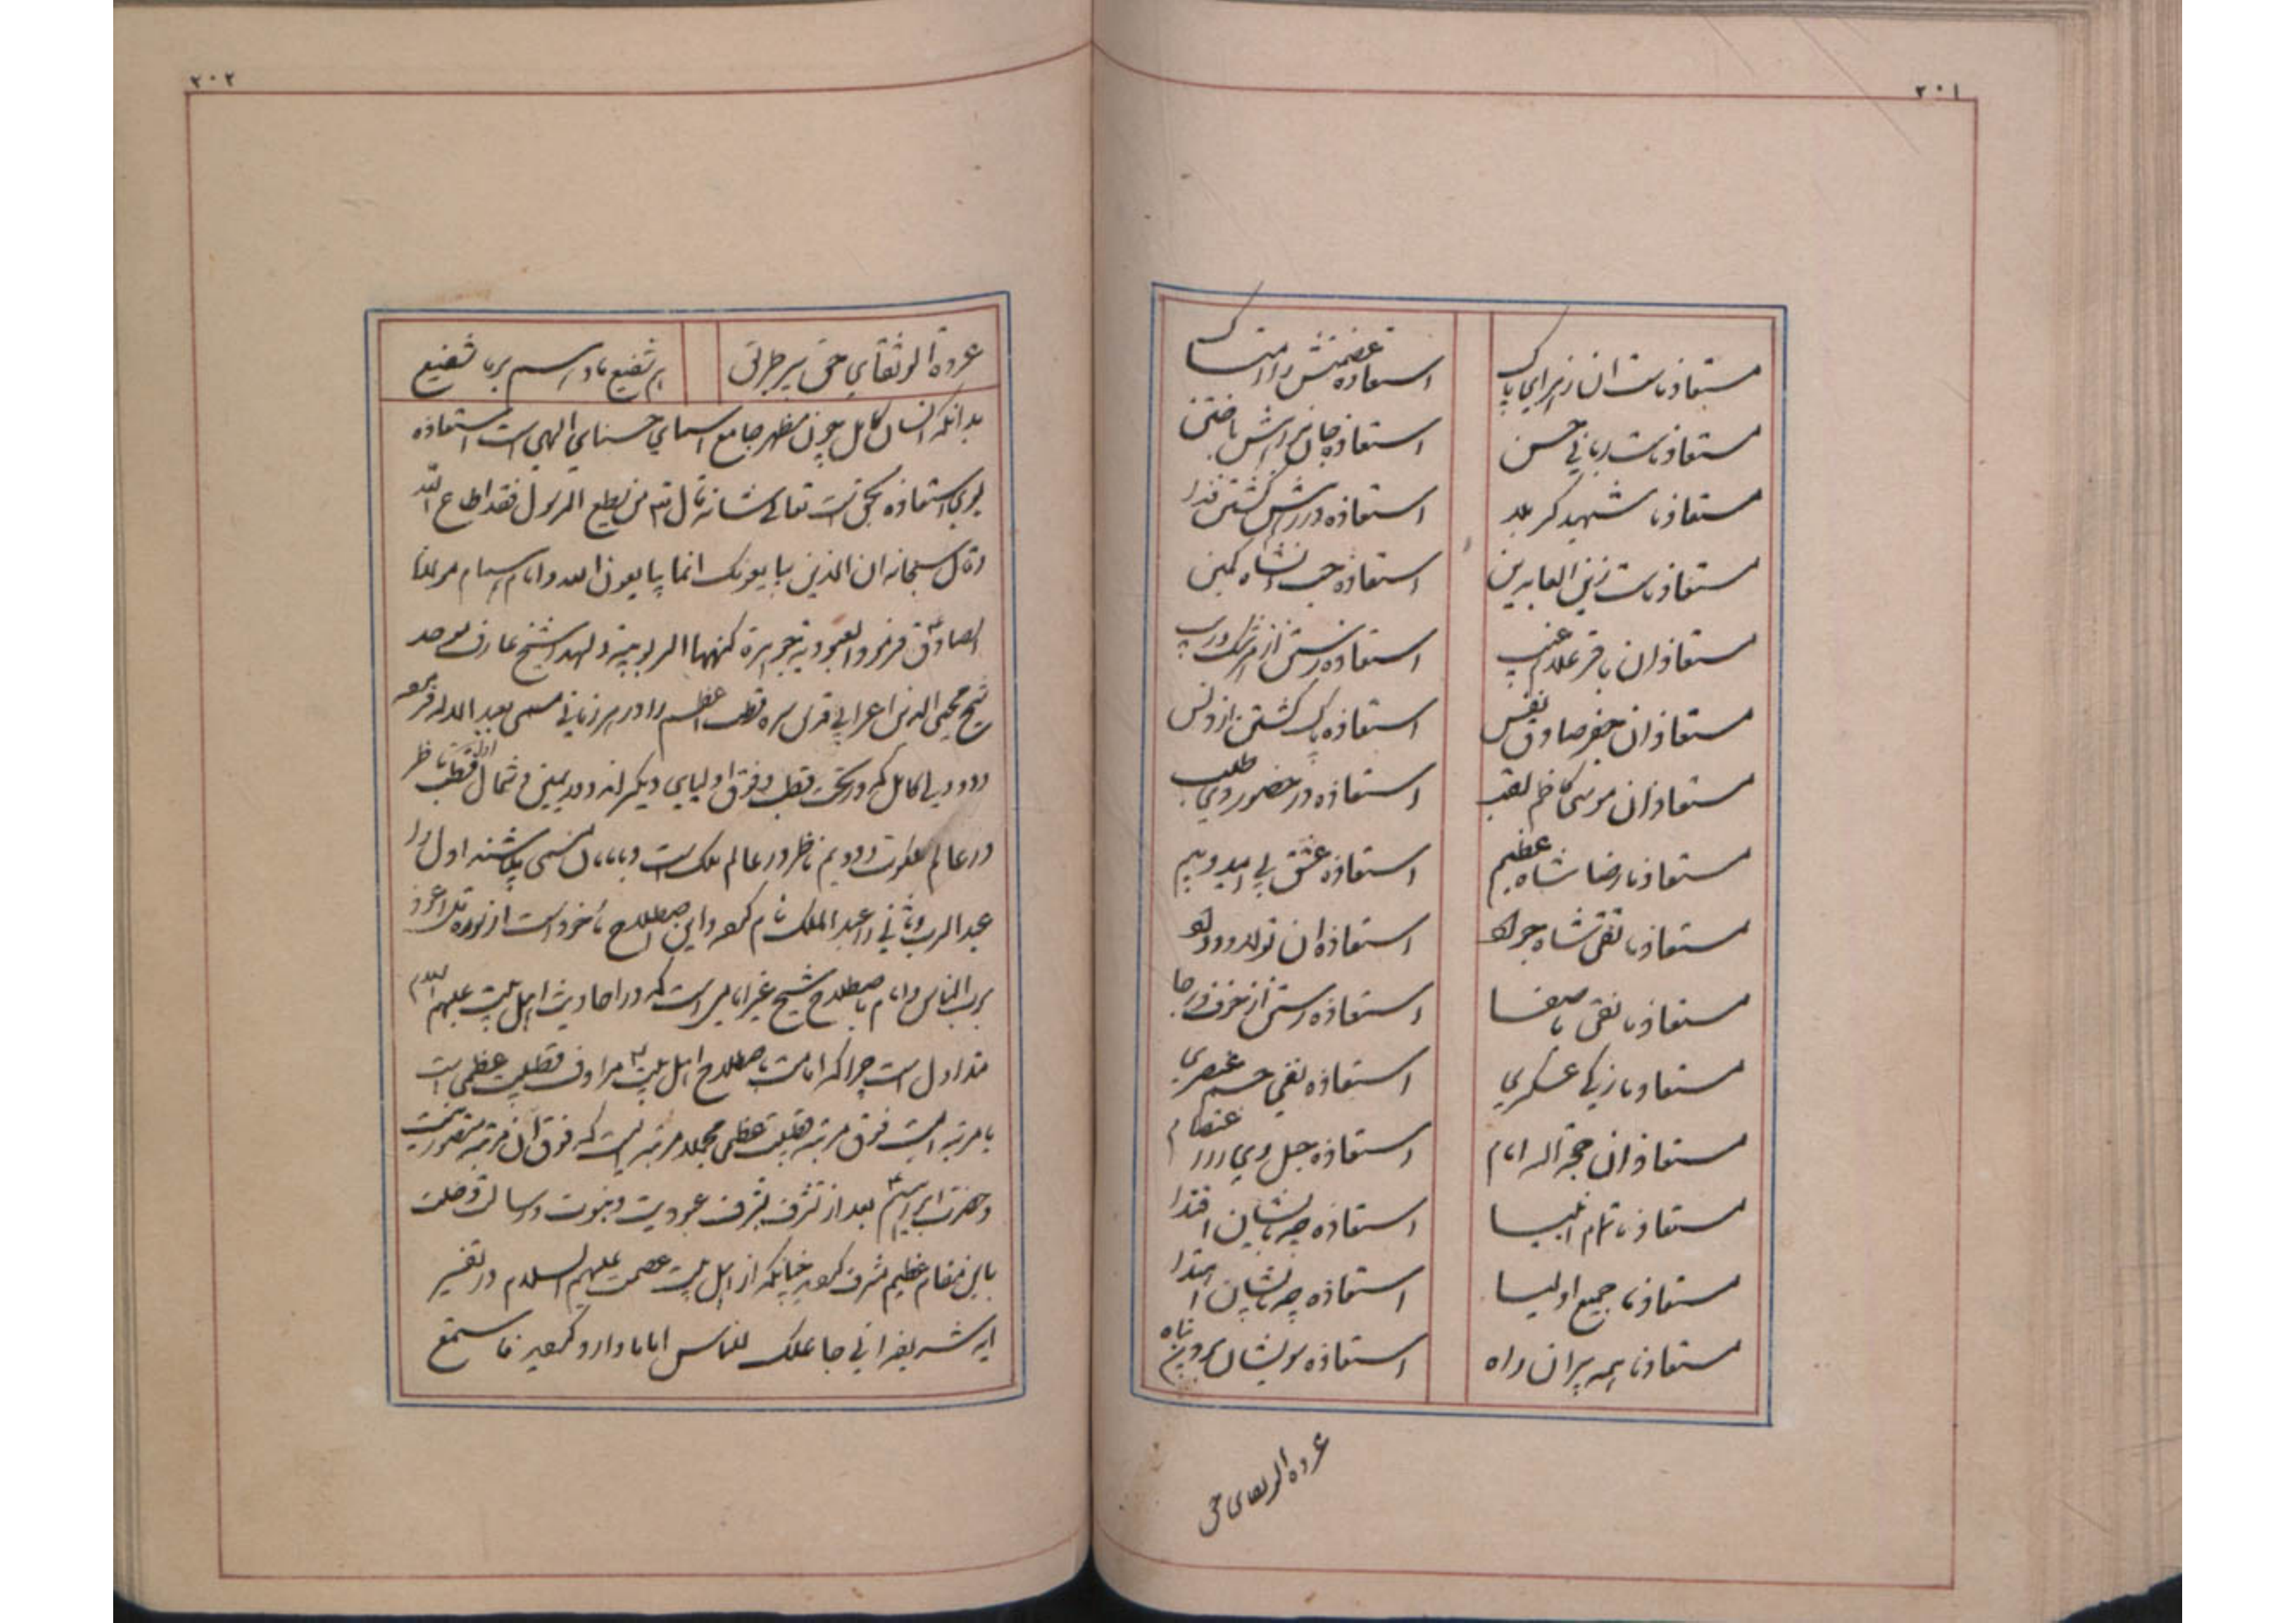 ۳۰۱
مستعاذ ماست ان زهرای پاک استعاذه عصمتش را
مستعاذ ماست ربانی حسن استعاذه جان براهش باختن
مستعاذ ما شهید کربلا استعاذه در رهش گشتن فدا
مستعاذ ماست زین العابدین استعاذه
مستعاذ ان باقر علام غیب استعاذه رستن از شرک و ریب
مستعاذ ان جعفر صادق نفس استعاذه پاک گشتن از دنس
مستعاذ ان موسی کاظم لقب استعاذه در حضور وی طلب
مستعاذ ما رضا شاه عظیم استعاذه عشق بی امید و بیم
مستعاذ ما تقی شاه جواد استعاذه ان تولا و وداد
مستعاذ ما نقی با صفا استعاذه رستن از خوف و رجا
مستعاذ ما زکی عسکری استعاذه نفی جسم عنصری
مستعاذ ان حجة اله امام استعاذه حبل وی را اعتصام
مستعاذ ما تمام انبیا استعاذه جو بایشان اقتدا
مستعاذ ما جمیع اولیا استعاذه جو بایشان اهتدا
مستعاذ ما همه پیران راه استعاذه سویشان بردن پناه
عروه الوثقای حق
۳۰۲
عروة الوثقای حق پیر طریق هم شفیع ما و اسم
بدانکه انسان کامل چون مظهر جامع اسمای حسنای الهی است استعاذه
بوی استعاذه بحق است تعالی شانه قال من یطع الرسول فقد اطاع الله
وقال سبحانه ان الذین یبایعونک انما یبایعون الله و امام
الصادق فرمود العبودیة جوهرة کنهها الربوبیة و لهذا شیخ عارف موحد
شیخ محیی الدین اعرابی قطب اعظم را در هر زمانی مسمی بعبد الله فرموده
و دو ولی کامل که در تحت قطب و فوق اولیای دیگراند و در یمین و شمال قطب ناظر
در عالم ملکوت و دویم ناظر در عالم ملک است و بامامان مسمی باشند اول را
عبد الرب و ثانی را عبد الملک نام کرده و این اصطلاح ماخوذ است از سوره قل اعوذ
برب الناس و امام باصطلاح شیخ غیر امامی است که در احادیث اهل بیت علیهم السلام
متداول است چرا که امامت باصطلاح اهل بیت مرادف قطبیت عظمی است
یا مرتبه ایست فوق مرتبه قطبیت عظمی مجملا مرتبه ایست که فوق ان مرتبه متصور نیست
و حضرت ابراهیم بعد از تشرف بشرف عبودیت و نبوت و رسالت و خلت
باین مقام عظیم مشرف گردید چنانکه از اهل بیت عصمت علیهم السلام در تفسیر
ایه شریفه انی جاعلک للناس اماما وارد گردیده فاستمع